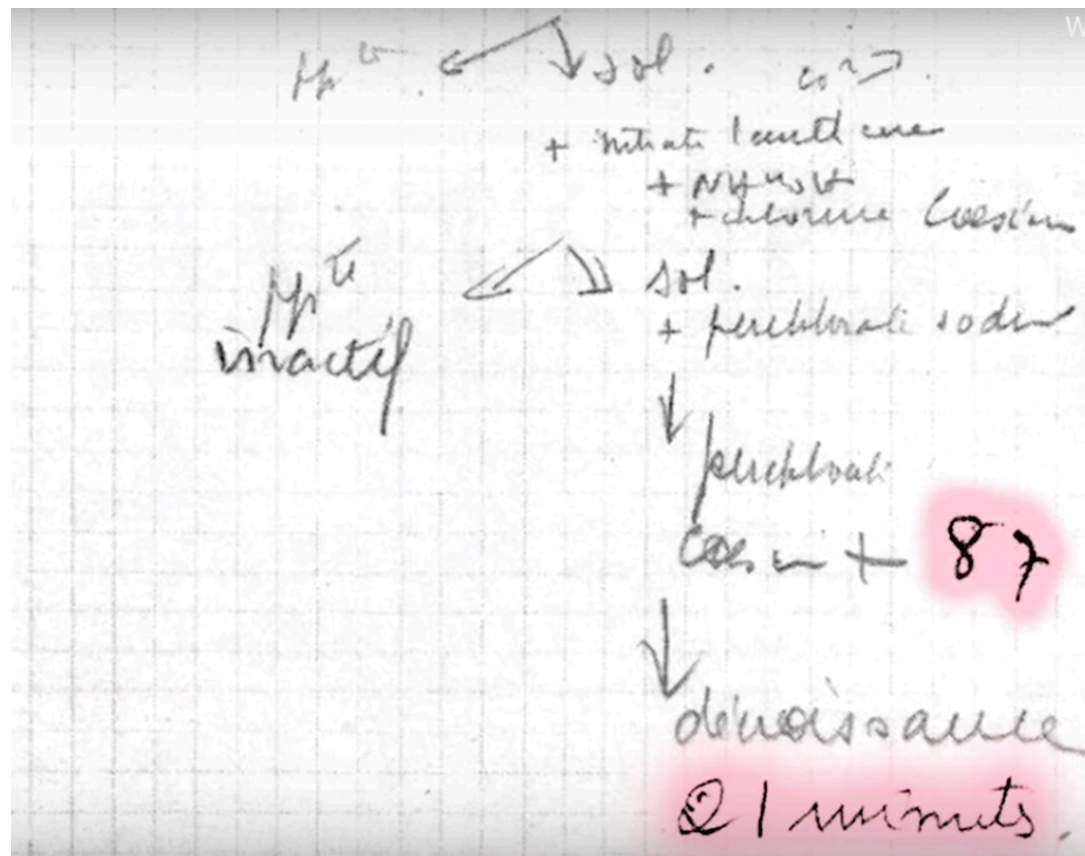 W
ppté sol. CO3
+ nitrate lanthane
+ NH4OH
+ chlorure Coesium
ppté sol.
inactif + perchlorate sodium
perchlorate
Coesium + 87
décroissance
21 minutes.